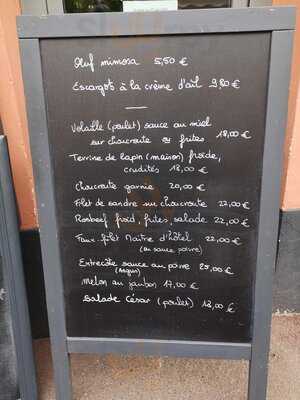 Œuf mimosa 5,50 €
Escargot à la crème d'ail 9,80 €
Volaille (poulet) sauce au miel
sur choucroute ou frites 18,00 €
Terrine de lapin (maison) froide,
crudités 18,00 €
Choucroute garnie 20,00 €
Filet de sandre sur choucroute 22,00 €
Rosbeef froid, frites, salade 22,00 €
Faux-filet Maître d'hôtel 22,00 €
(ou sauce poivre)
Entrecôte sauce au poivre 25,00 €
(Angus)
Melon au jambon 17,00 €
Salade César (poulet) 18,00 €